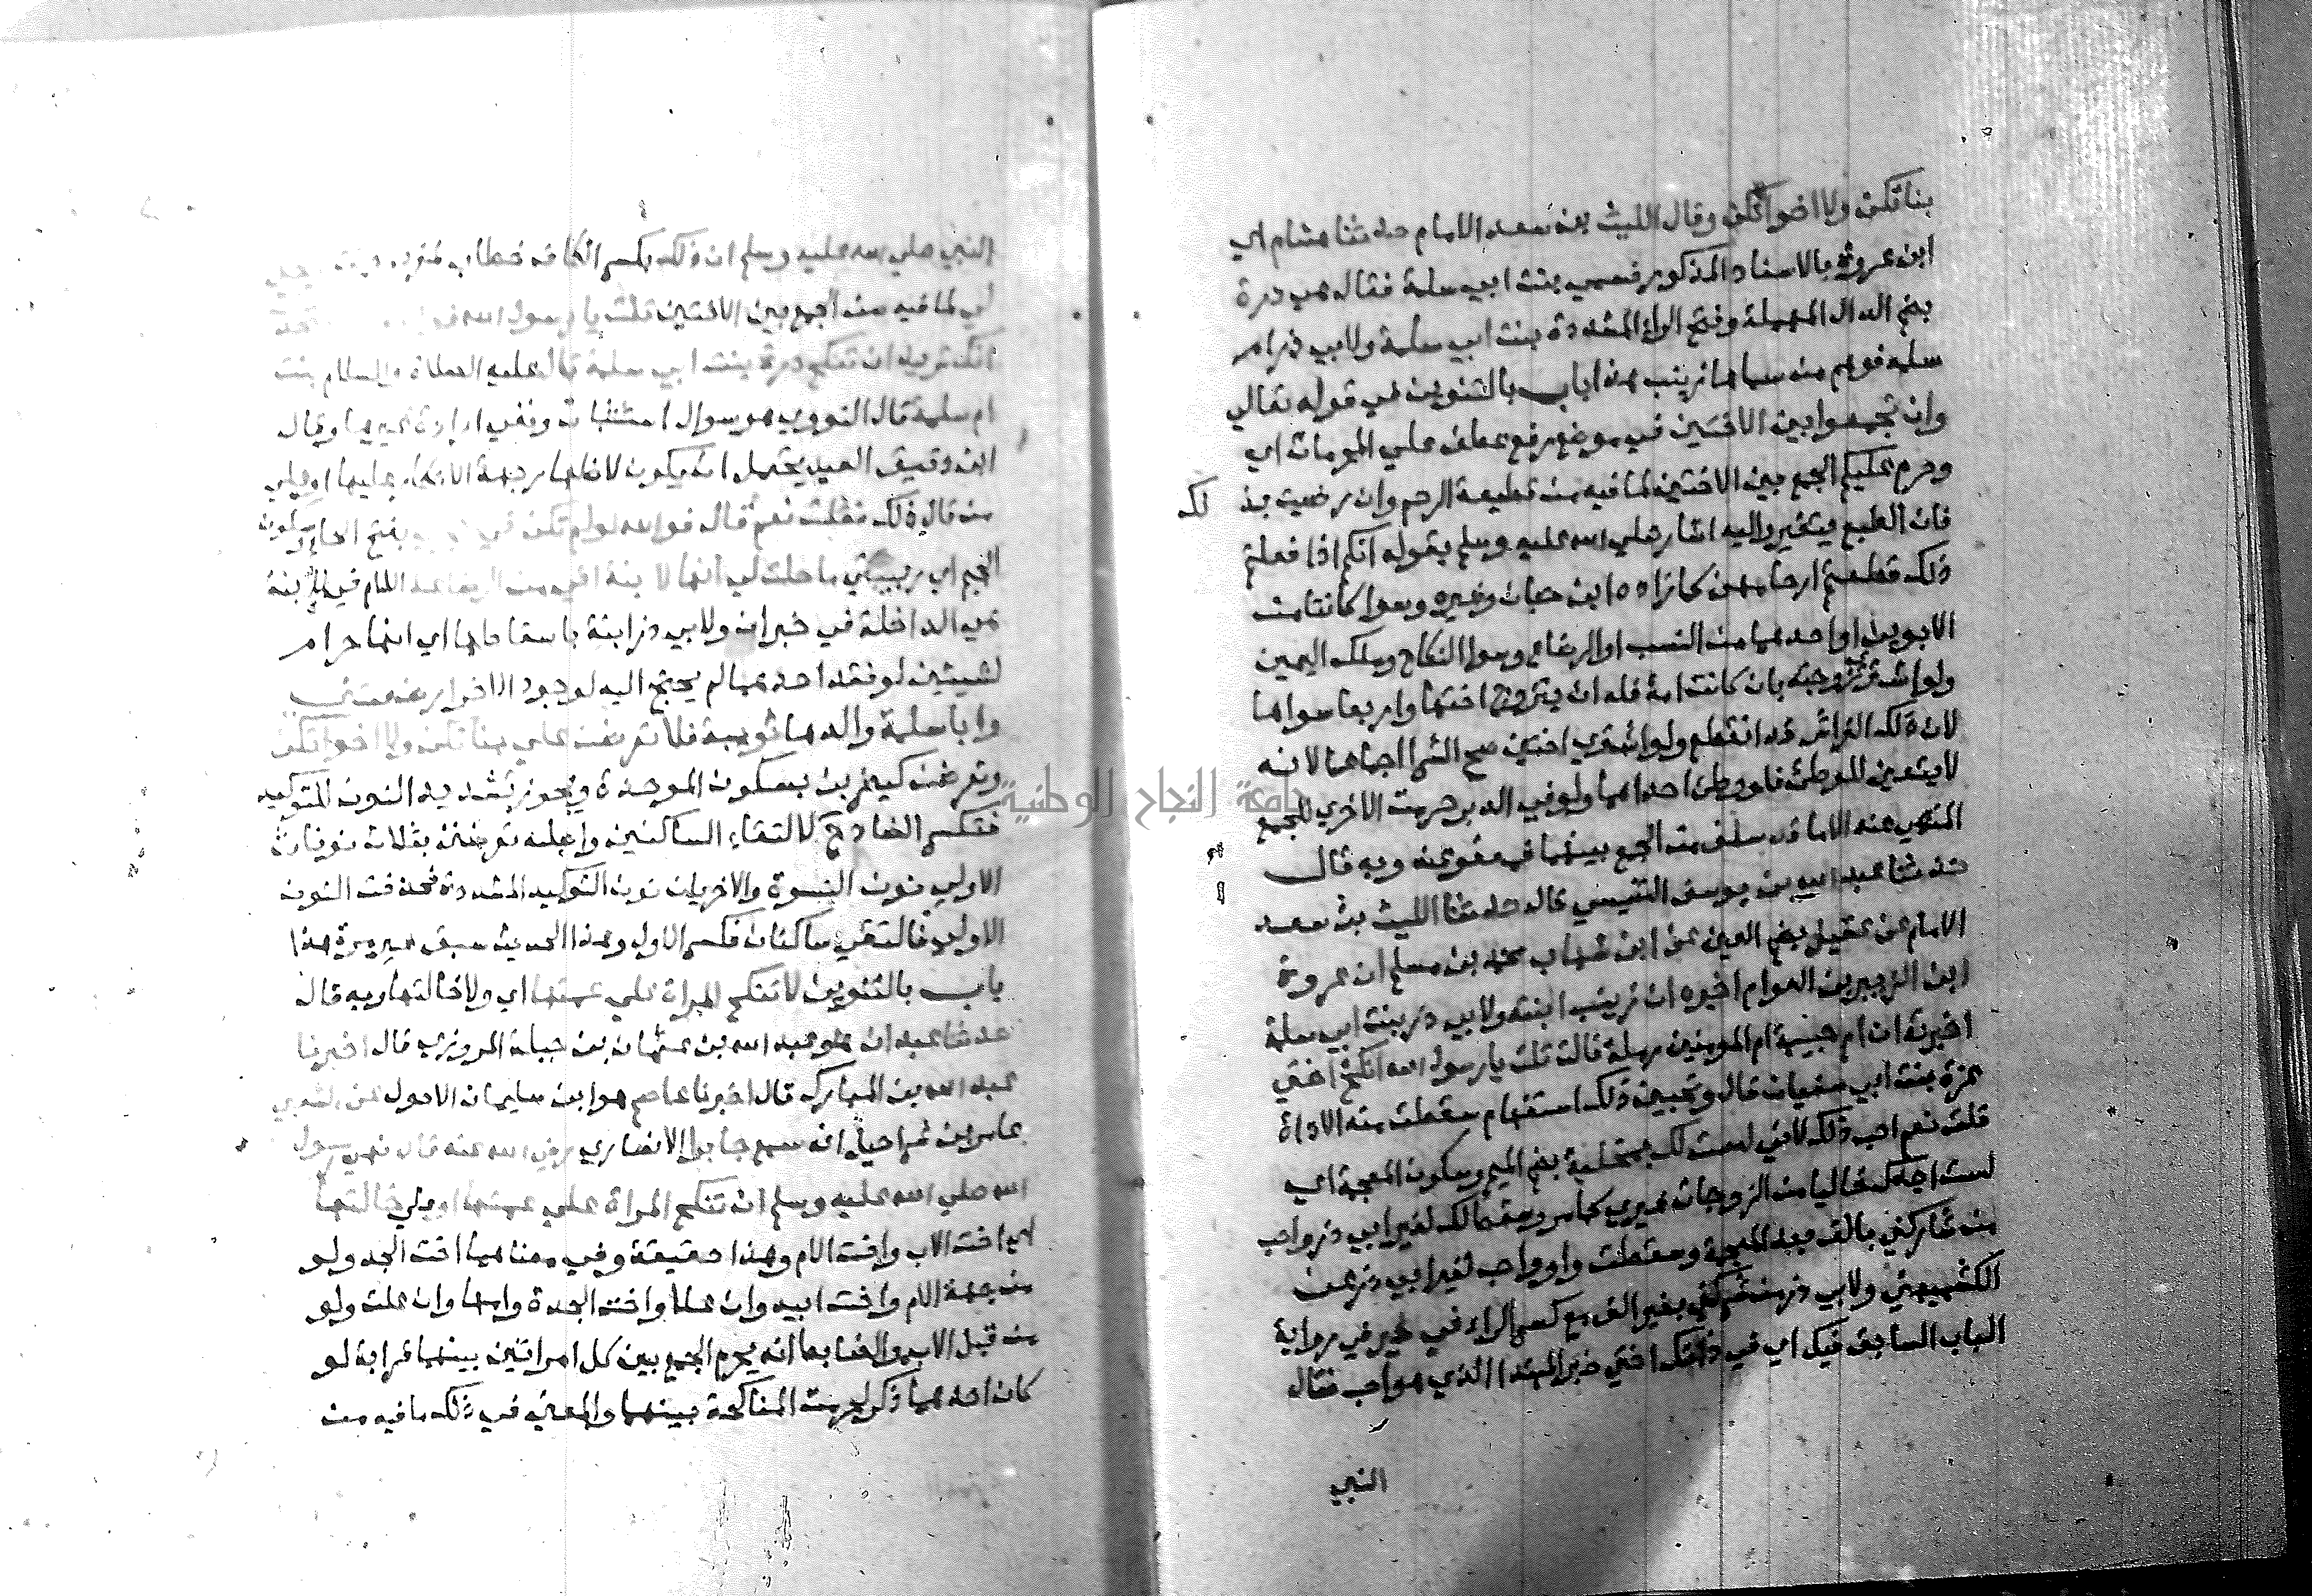 بناتكن ولا اخواتكن وقال الليث بن سعد الامام حدثنا هشام اي
ابن عروة بالاسناد المذكور فسمى بنت ابي سلمة فقال هي درة
بضم الدال المهملة وفتح الراء المشددة بنت ابي سلمة ولابي ذر ام
سلمه فوهم من سماها زينب هذا باب بالتنوين في قوله تعالي
وان تجمعوا بين الاختين في موضع رفع عطف علي المحرمات اي
وحرم عليكم الجمع بين الاختين لما فيه من قطيعة الرحم وان رضيت بذ لك
فان الطبع يتغير واليه اشار صلي الله عليه وسلم بقوله انكم اذا فعلتم
ذلك قطعتم ارحامهن كما زاده ابن حبان وغيره وسوا كانتا من
الابوين او احدهما من النسب او الرضاع وسوا النكاح وملك اليمين
ولو اشتري زوجته بان كانت امة فله ان يتزوج اختها واربعا سواها
لان ذلك الفراش قد انقطع ولو اشتري اختين صح الشرا اجماعا لانه
لا يتعين للوطئ فلو وطئ احداهما ولو في الدبر حرمت الاخري للجمع
المنهي عنه الا ما قد سلف من الجمع بينهما فمعفو عنه وبه قال
حدثنا عبد الله بن يوسف التنيسي قال حدثنا الليث بن سعد
الامام عن عقيل بضم العين عن ابن شهاب محمد بن مسلم ان عروة
ابن الزبير بن العوام اخبره ان زينب ابنة ولابي ذر بنت ابي سلمة
اخبرته ان ام حبيبة ام المومنين رملة قالت قلت يا رسول الله انكح اختي
عزة بنت ابي سفيان قال وتحبين ذلك استفهام سقطت منه الاداة
قلت نعم احب ذلك لاني لست لك بمخلية بضم الميم وسكون المعجمة اي
لست اجدك خاليا من الزوجات غيري كما مر وسقط لك لغير ابي ذر واحب
من شاركني بالف بعد المعجمة وسقطت واو واحب لغير ابي ذر عن
الكشميهني ولابي ذر من شركني بغير الف مع كسر الراء في خير في رواية
الباب السابق فيك اي في ذاتك اختي خبر المبتدا الذي هو احب فقال
النبي
النبي صلي الله عليه وسلم ان ذلك بكسر الكاف خطاب
لي لما فيه من الجمع بين الاختين قلت يا رسول الله
انك تريد ان تنكح درة بنت ابي سلمة قال عليه الصلاة والسلام بنت
ام سلمة قال النووي هو سوال استثبات ونفي ارادة غيرها وقال
ابن دقيق العيد يحتمل ان يكون لاظهار جهة الانكار عليها او علي
من قال ذلك فقلت نعم قال فوالله لو لم تكن في بفتح الحاء وسكون
الجيم اي ربيبتي ما حلت لي انها لابنة اخي من الرضاعة اللام في لابنة
هي الداخلة في خبر ان ولابي ذر ابنة باسقاطها اي انها حرام
لشيئين لو فقد احدهما لم يحتج اليه لوجود الاخر ارضعتني
وابا سلمة والدها ثويبة فلا تعرضن علي بناتكن ولا اخواتكن
وتعرضن كيضربن بسكون الموحدة ويجوز بتشديد النون للتوكيد
فتكسر الضاد ح لالتقاء الساكنين واصله تعرضنن بثلاث نونات
الاولي نون النسوة والاخريان نون التوكيد المشددة فحذفت النون
الاولي فالتقي ساكنان فكسر الاول وهذا الحديث سبق غير مرة هذا
باب بالتنوين لا تنكح المراة علي عمتها اي ولا خالتها وبه قال
حدثنا عبدان هو عبد الله بن عثمان بن جبلة المروزي قال اخبرنا
عبد الله بن المبارك قال اخبرنا عاصم هو ابن سليمان الاحول عن الشعبي
عامر بن شراحيل انه سمع جابر الانصاري رضي الله عنه قال نهي رسول
الله صلي الله عليه وسلم ان تنكح المراة علي عمتها او علي خالتها
اي اخت الاب واخت الام وهذا حقيقة وفي معناهما اخت الجد ولو
من جهة الام واخت ابيه وان علا واخت الجدة وامها وان علت ولو
من قبل الاب والضابط انه يحرم الجمع بين كل امراتين بينهما قرابة لو
كان احدهما ذكر لحرمت المناكحة بينهما والمعني في ذلك ما فيه من
جامعة النجاح الوطنية